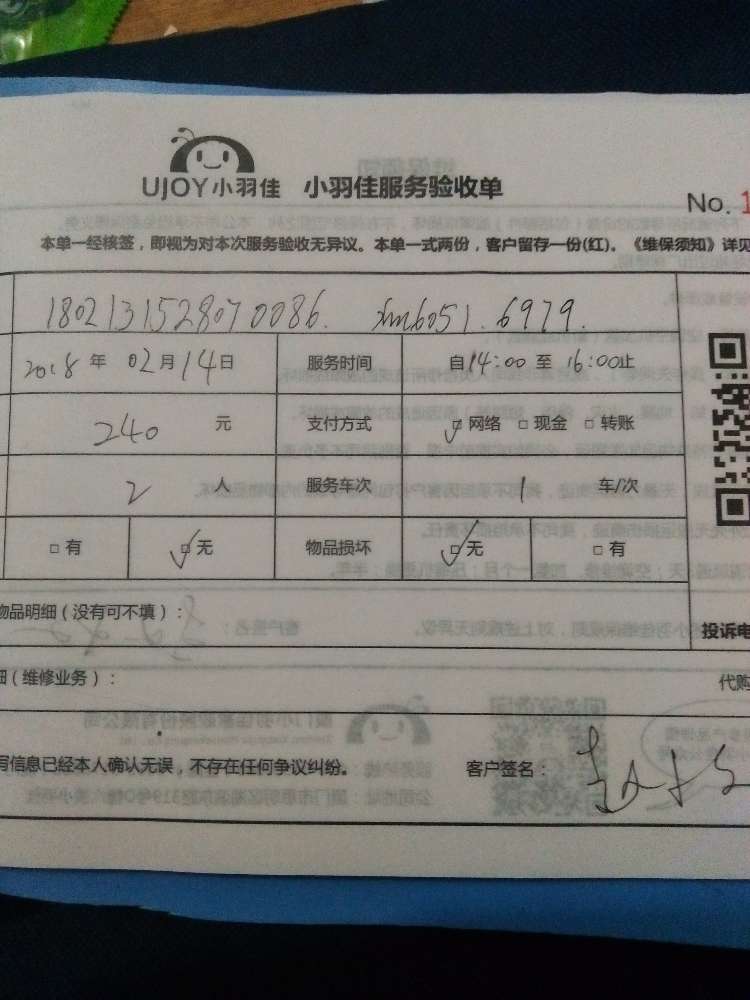 UJOY小羽佳 小羽佳服务验收单
No. 1
本单一经核签，即视为对本次服务验收无异议。本单一式两份，客户留存一份(红)。《维保须知》详见
1802131528070086. xm6051.6979.
2018年 02月14日 服务时间 自14:00 至 16:00止
240 元 支付方式 ☑网络 □现金 □转账
2 人 服务车次 1 车/次
□有 ☑无 物品损坏 ☑无 □有
物品明细（没有可不填）：
投诉电
细（维修业务）：
代购
写信息已经本人确认无误，不存在任何争议纠纷。 客户签名：